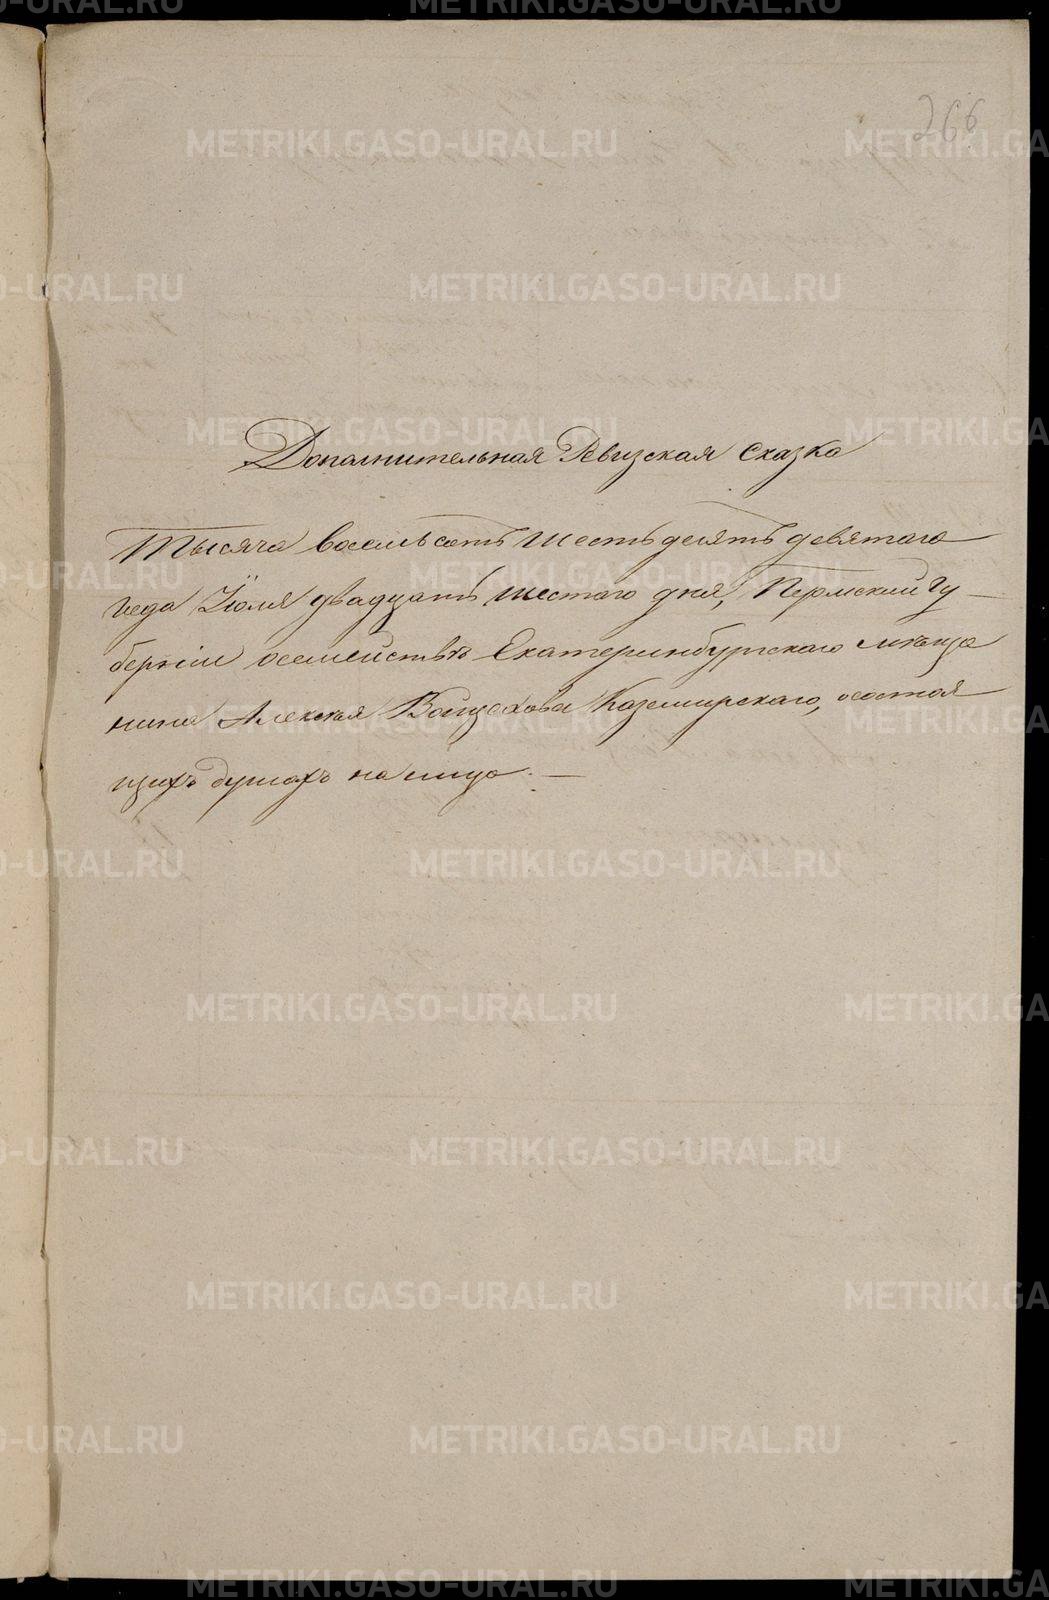 266
Дополнительная Ревизская Сказка
Тысяча восемьсотъ шестьдесятъ девятаго
года Iюля двадцать шестаго дня, Пермский гу-
бернiи осемействѣ Екатеринбургскаго мѣща
нина Алексѣя Войцехова Каземирскаго, осостоя
щихъ душахъ на лицо. —
METRIKI.GASO-URAL.RU